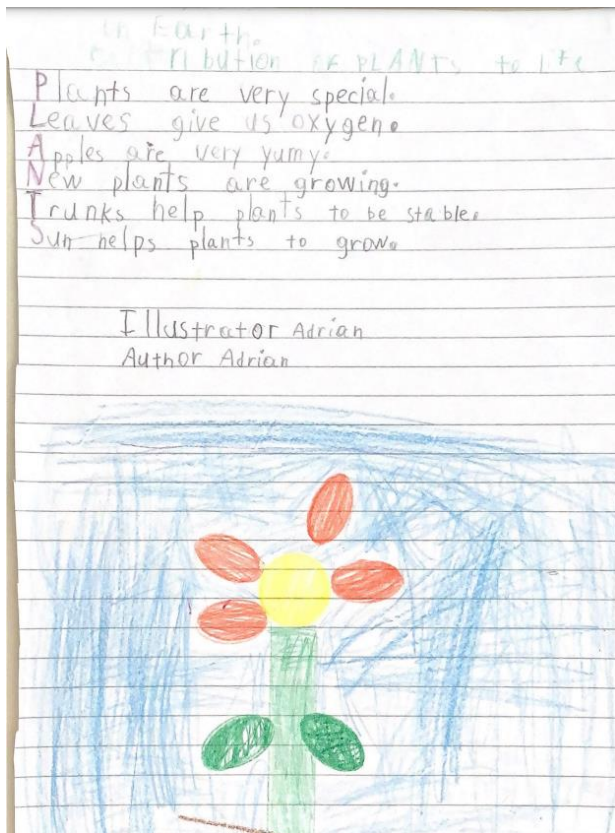 in Earth.
tribution of PLANTs to life
Plants are very special.
Leaves give us oxygen.
Apples are very yumy.
New plants are growing.
Trunks help plants to be stable.
Sun helps plants to grow.
Illustrator Adrian
Author Adrian